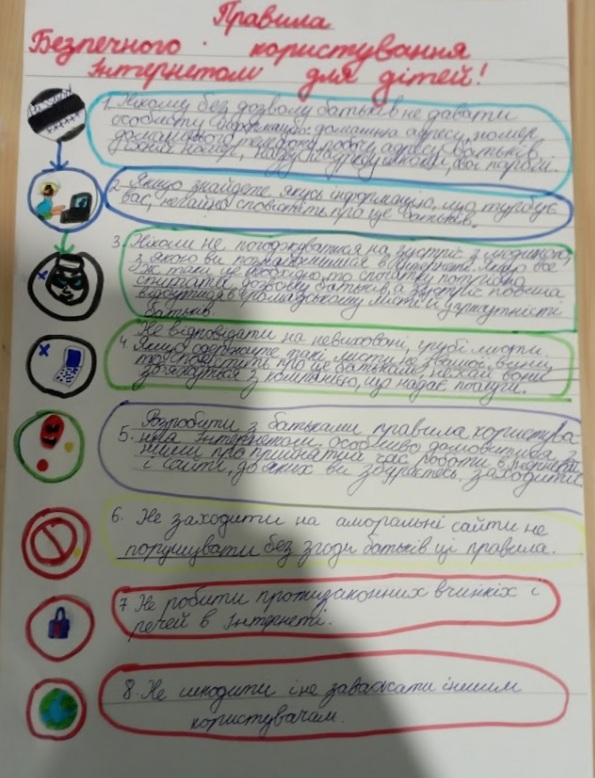 Правила
Безпечного користування
Інтернетом для дітей!
1. Нікому без дозволу батьків не давати
особисту інформацію: домашню адресу, номер
домашнього телефону, робочу адресу батьків,
школи, свої паролі.
2. Якщо знайдете якусь інформацію, що турбує
вас, негайно сповістіть про це батьків.
3. Ніколи не погоджуватися на зустріч з людиною,
з якою ви познайомились в Інтернеті. Якщо все
ж таки це необхідно, то спочатку потрібно
спитати дозволу батьків, а зустріч повинна
відбутися в громадському місті й у присутністі
батьків.
Не відповідати на невиховані, грубі листи.
4. Якщо одержите такі листи не з вашої вини,
то сповістить про це батьків, нехай вони
зв'яжуться з компанією, що надає послуги.
Розробити з батьками правила користува-
5. ння Інтернетом. Особливо домовитися з
ними про прийнятний час роботи в Інтернеті
і сайти, до яких ви збираєтесь заходити
6. Не заходити на аморальні сайти не
порушувати без згоди батьків ці правила.
7 Не робити протизаконних вчинків і
речей в Інтернеті.
8. Не шкодити і не заважати іншим
користувачам.